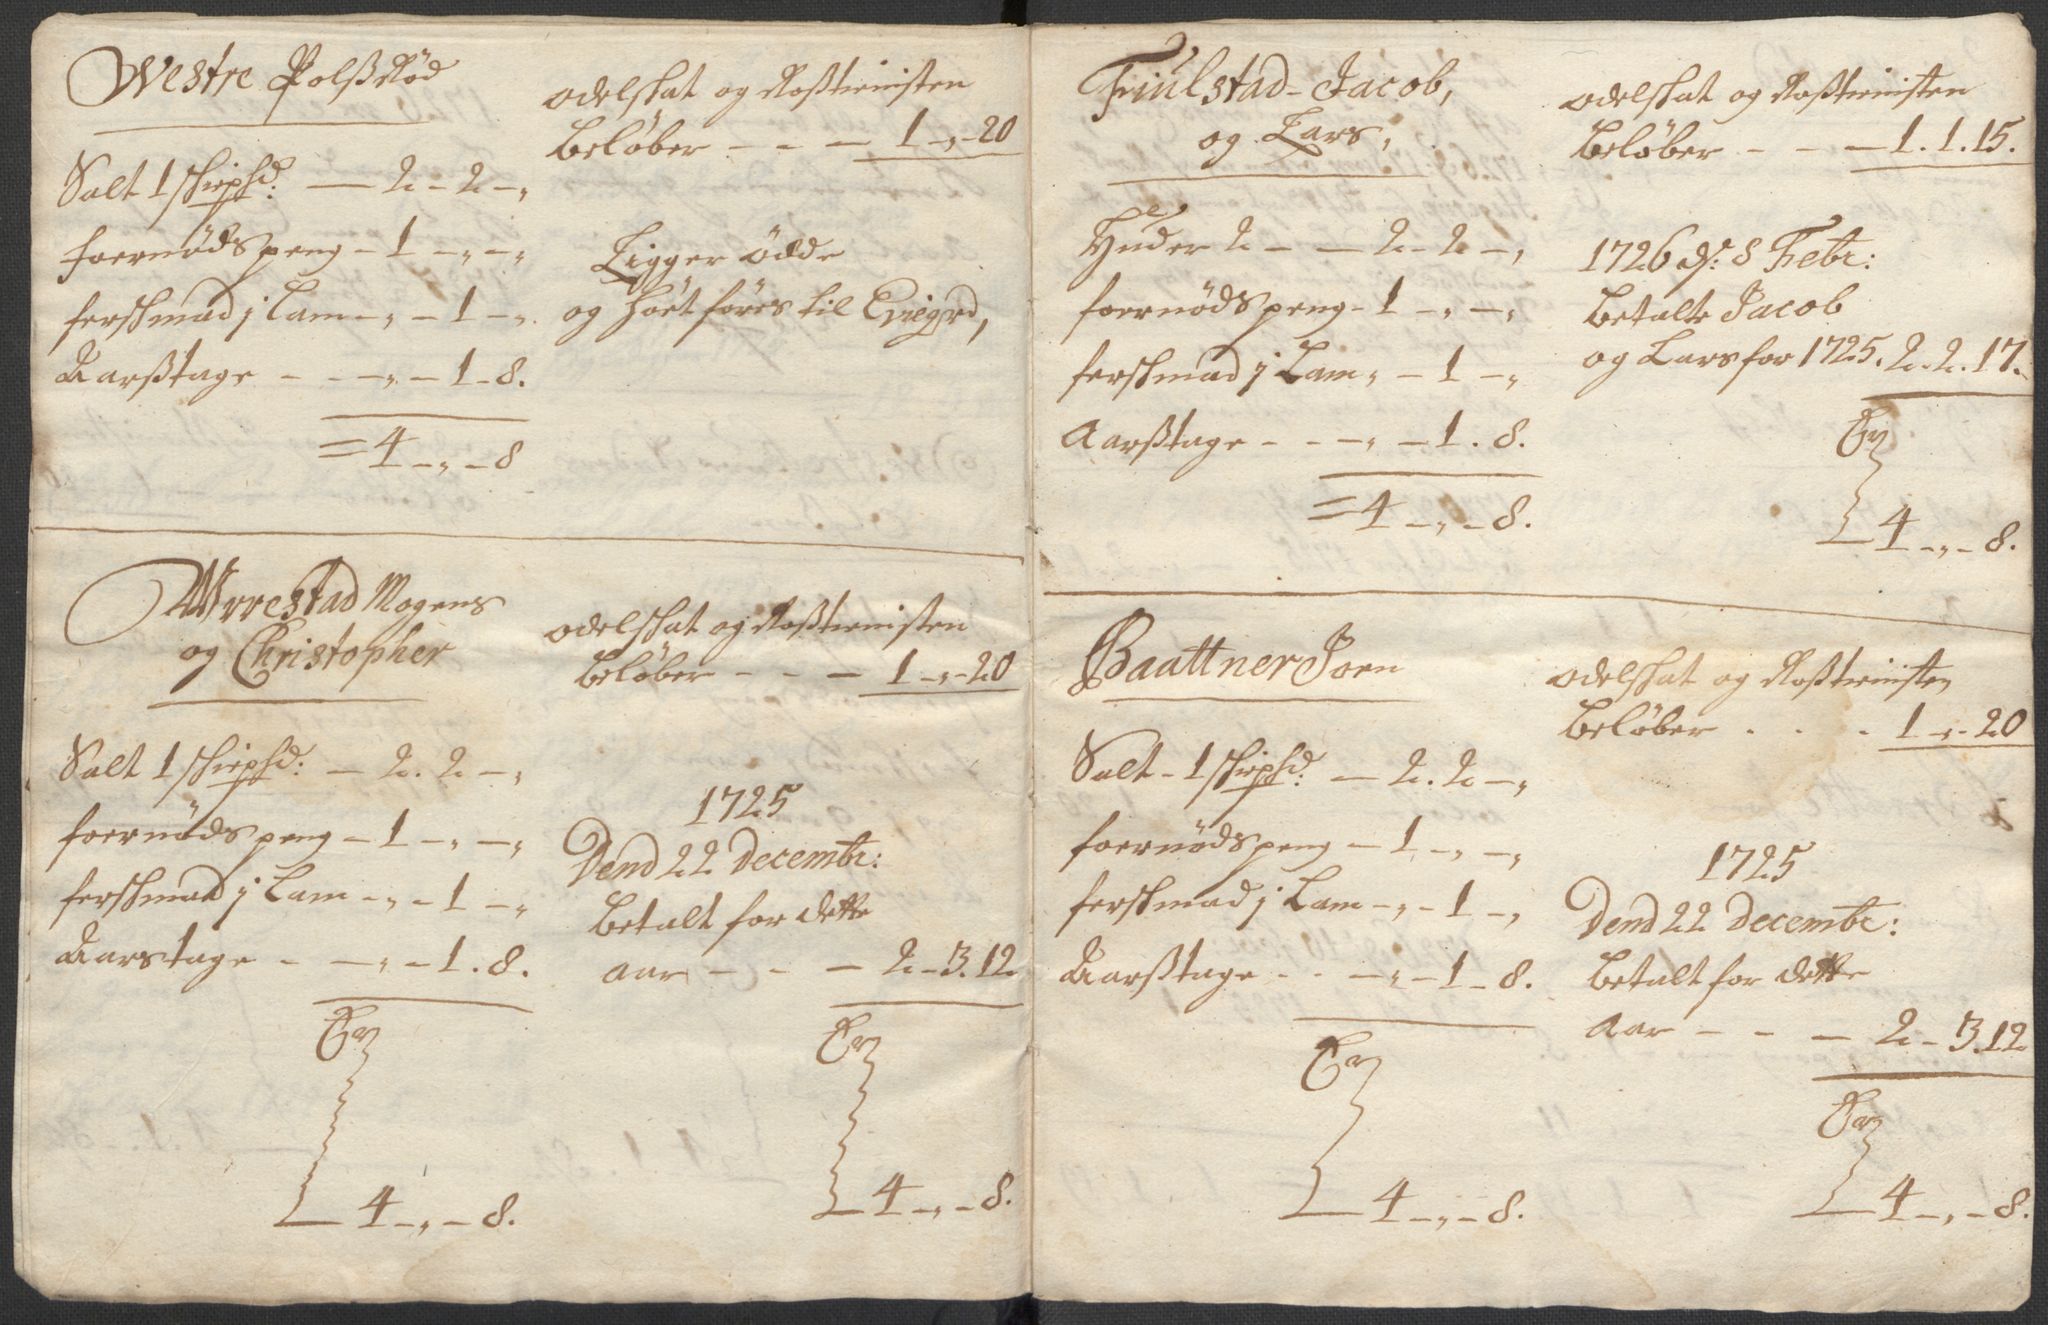 Westre Polßrød
Salt 1 skiepsd: — 2 - 2 - „
foernødspeng - 1 - „ - „
ferskmad j Lam - „ - 1 - „
Aarßtage - - - „ - 1 - 8.
= 4 - „ - 8
odelskat og Roßtienisten
Beløber - - - 1 - „ - 20
Ligger ödde
og höet föres til Eviegrd,
Wrrestad Mogens
og Christopher
Salt 1 skiepsd: — 2. 2 - „
foernødspeng - 1 - „ - „
ferskmad j Lam - „ - 1 - „
Aarstage - - „ - 1. 8.
Er
4 - „ - 8.
odelskat og Roßtienisten
Beløber - - - 1 - „ - 20
1725
Dend 22 Decembr:
Betalt for dette
aar - - - 2 - 3. 12
Er
4 - „ - 8.
Friulstad - Jacob,
og Lars,
Huder 2 - - 2 - 2 - „
foernødspeng - 1 - „ - „
ferskmad j Lam „ - 1 - „
Aarßtage - - - „ - 1. 8.
= 4 - „ - 8.
odelskat og Roßtienisten
Beløber - - - 1. 1. 15.
1726 ds: 8 Febr:
Betalte Jacob
og Lars for 1725. 2. 2. 17.
Er
4 - „ - 8.
Baattner Joen
Salt - 1 skiepsd: — 2. 2 - „
foernødspeng - 1 - „ - „
ferskmad j Lam - „ - 1 - „
Aarßtage - - - „ - 1 - 8.
Er
4 - „ - 8.
odelskat og Roßtienisten
Beløber . . . 1 - „ - 20
1725
Dend 22 Decembr:
Betalt for dette
Aar - - - 2 - 3. 12
Er
4 - „ - 8.